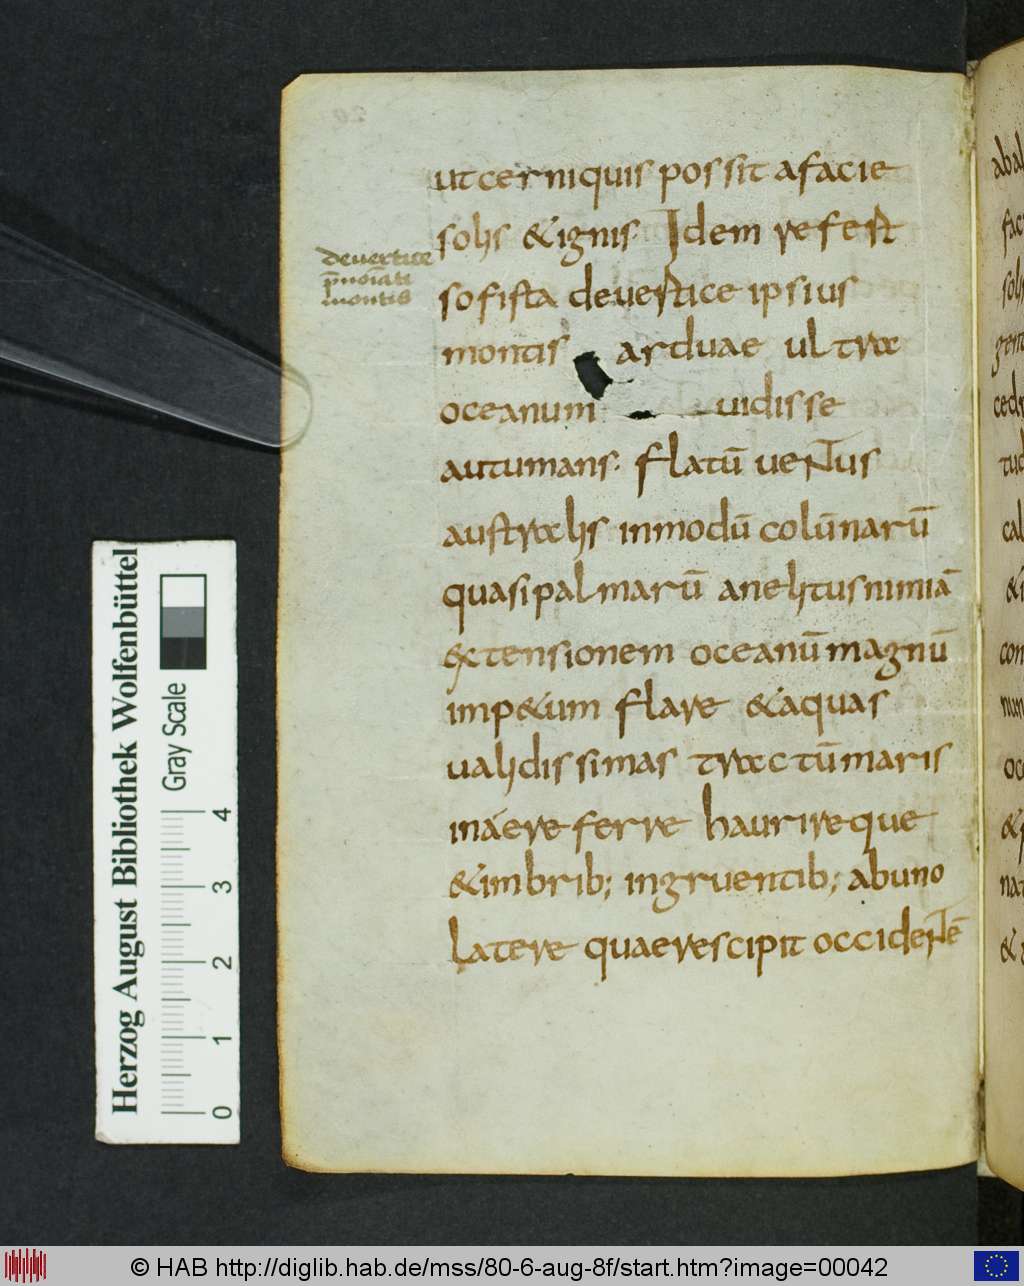 ut cerni quis possit a facie
solis & ignis. Idem refert
sofista de vertice ipsius
deuertice
p̄nōiati
montis
montis arduae ultra
oceanum uidisse
autumans. flatū ventus
australis in modū colūnarū
quasi palmarū anelitus nimiā
extensionem oceanū magnū
imp&um flare & aquas
ualidissimas tractū maris
in aere ferre haurireque
& imbrib; ingruentib; ab uno
latere quae rescipit occidentē
Herzog August Bibliothek Wolfenbüttel
Gray Scale
0 1 2 3 4
© HAB http://diglib.hab.de/mss/80-6-aug-8f/start.htm?image=00042